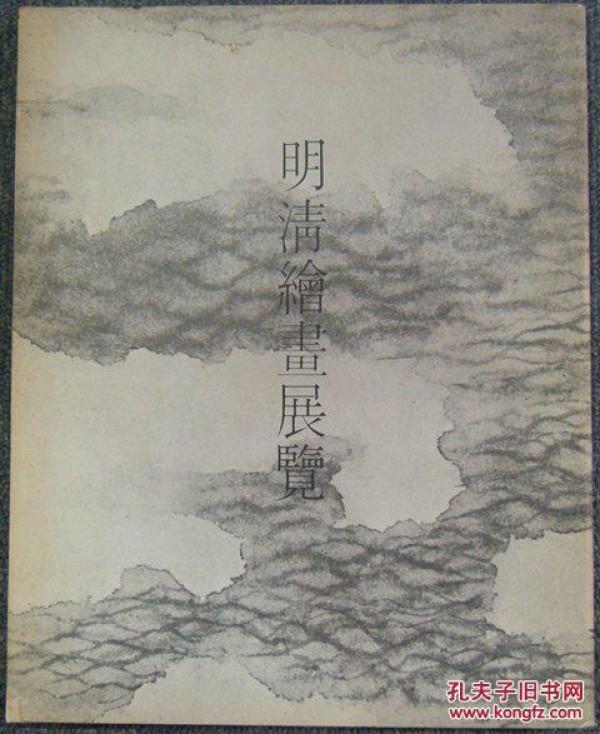 明清繪畫展覽
孔夫子旧书网
www.kongfz.com